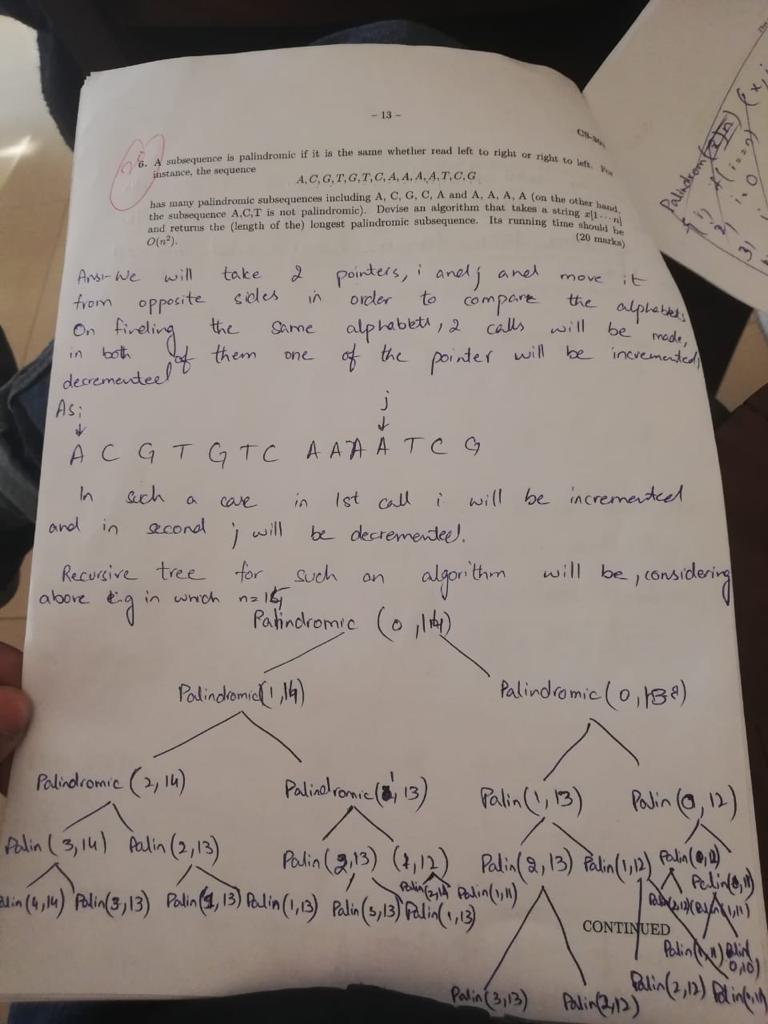 - 13 -
6. A subsequence is palindromic if it is the same whether read left to right or right to left. For
instance, the sequence
A, C, G, T, G, T, C, A, A, A, A, T, C, G
has many palindromic subsequences including A, C, G, C, A and A, A, A, A (on the other hand,
the subsequence A,C,T is not palindromic). Devise an algorithm that takes a string x[1 ··· n]
and returns the (length of the) longest palindromic subsequence. Its running time should be
O(n²).
(20 marks)
Ans:- We will take 2 pointers, i and j and move it
from opposite sides in order to compare the alphabets.
On finding the same alphabets, 2 calls will be made,
in both of them one of the pointer will be incremented/
decremented
As;
j
A C G T G T C A A A A T C G
In such a case in 1st call i will be incremented
and in second j will be decremented.
Recursive tree for such an algorithm will be, considering
above e.g in which n=
Palindromic (0,14)
Palindromic(1,14) Palindromic(0,13)
Palindromic (2,14) Palindromic(1,13) Palin(1,13) Palin(0,12)
Palin(3,14) Palin(2,13) Palin(2,13) (1,12) Palin(2,13) Palin(1,12)
Palin(4,14) Palin(3,13) Palin(1,13) Palin(3,13) Palin(1,13) Palin(1,11)
CONTINUED
Palin(3,13) Palin(2,12) Palin(2,12)